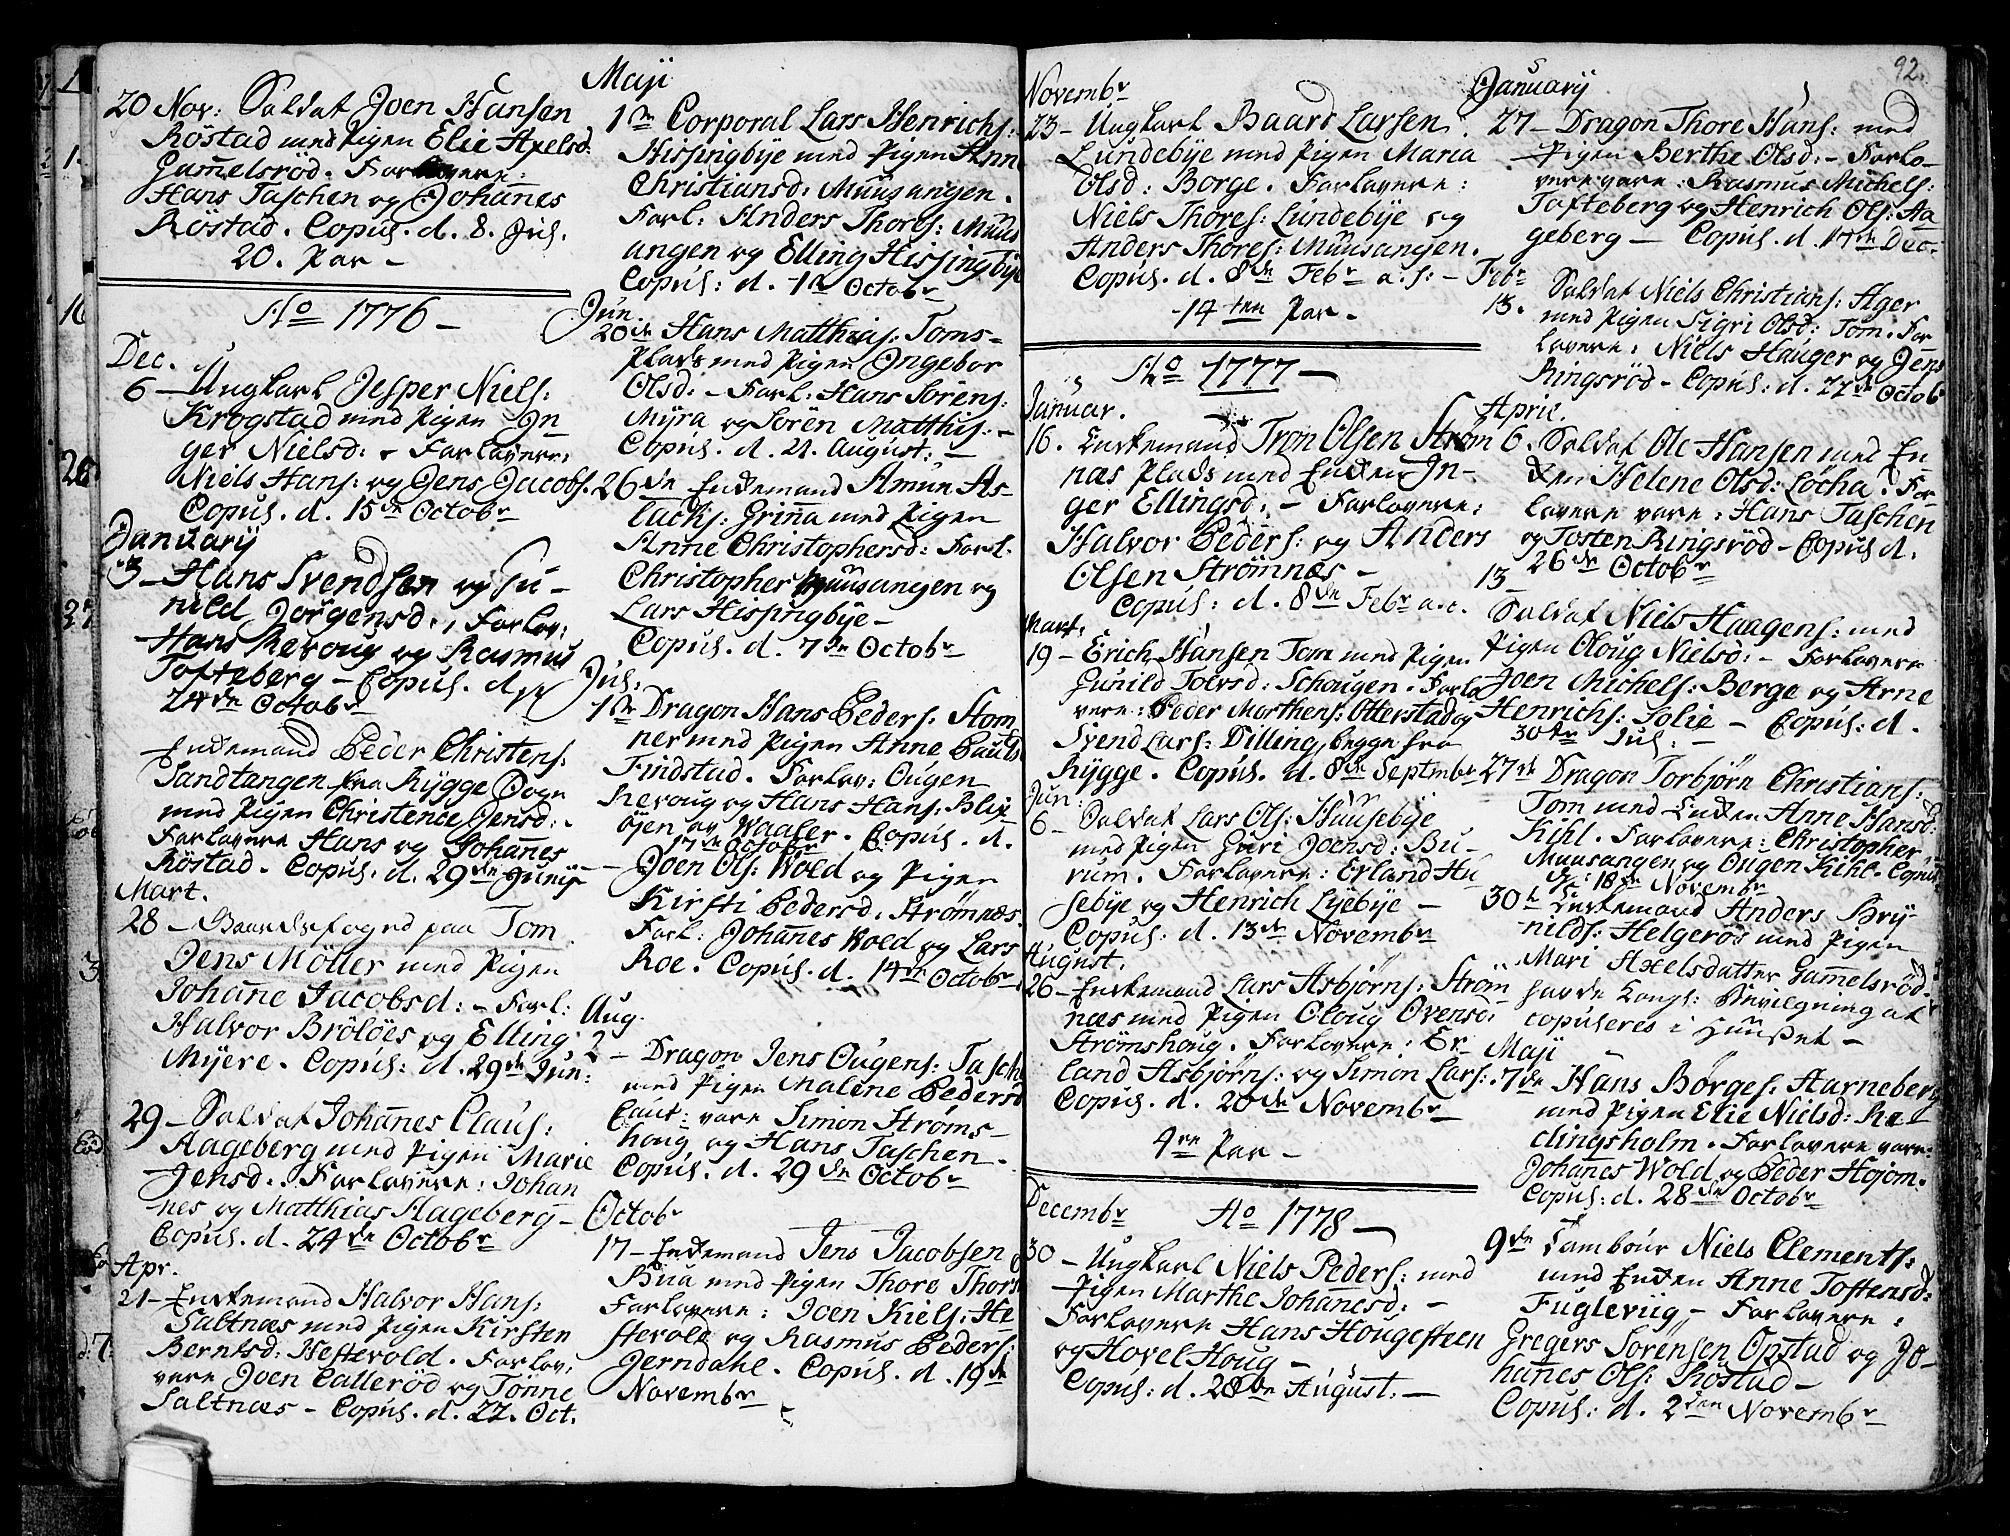 20 Nov: Soldat Joen Hansen
Röstad med Pigen Elie Axelsd:
Gamelsröd. Forlovere:
Hans Taschen og Johanes
Röstad. Copul. d. 8. Jul.
20. Par -
Ao 1776 -
Dec.
6 - Ungkarl Jesper Niels:
Krogstad med Pigen In
ger Nielsd: - Forlovere:
Niels Hans: og Jens Jacobs.
Copul. d. 15de Octobr
Januarij
3 - Hans Svendsen og Gu-
nild Jörgensd., Forlov:
Hans Kervoug og Rasmus
Tofteberg - Copul. d.
24de Octobr
Enkemand Peder Christens:
Sandtangen fra Rÿgge Sogn
med Pigen Christence Jensd:.
Forlovere Hans og Johanes
Röstad. Copul. d. 29de Junij
Mart.
28 - Gaardsfoged paa Tom
Jens Möller med Pigen
Johane Jacobsd: - Forl:
Halvor Bröløes og Elling
Myere. Copul: d. 29de Jun:
29 - Soldat Johanes Claus:
Aageberg med Pigen Marie
Jensd:. Forlovere: Johan
nes og Matthias Aageberg -
Copul. d. 24de Octobr
Apr.
21 - Enkemand Halvor Hans:
Saltnæs med Pigen Kirsten
Berntsd: Hestevold. Forlov:
vere Joen Callerød og Tønne
Saltnæs - Copul. d. 22. Oct.
Maji
1ste Corporal Lars Henrichs:
Hissingbye med Pigen Ann
Christiansd: Muusangen.
Forl: Anders Thores: Muus
angen og Elling Hissingbye
Copul: d. 1ste Octobr
Jun.
20de Hans Matthis: Toms-
Plads med Pigen Ingebor
Olsd: - Forl: Hans Sörens:
Myra og Sören Matthis: -
Copul. d. 21. August: -
26de Enkemand Amun As-
lacks: Grina med Pigen
Anne Christophersd: Forl:
Christopher Muusangen og
Lars Hissingbye -
Copul. d. 7de Octobr
Jul:
1ste Dragon Hans Peders: Hom
ner med Pigen Anne Pouls
Findstad. Forlov: Ougen
Kervoug og Hans Hans: Blix
öjen av Waaler. Copul. d.
17de Octobr
- Joen Ols: Wold og Pigen
Kirsti Pedersd: Strømnæs
Forl: Johanes Wold og Lars
Roe. Copul. d. 14de Octobr
Aug.
2 - Dragon Jens Ougens: Tasch
med Pigen Malene Pedersd
Caut: vare Simon Strøms-
houg og Hans Taschen.
Copul. d. 29de Octobr
Octobr
17 - Enkemand Jens Jacobsen
Bua med Pigen Thore Thors
Forlovere: Joen Kiels: He
stevold og Rasmus Peders:
Jerndahl. Copul. d. 19de
Novembr
Novembr
23 - Ungkarl Baard Larsen
Lundebye med Pigen Maria
Olsd: Borge. Forlovere:
Niels Thores: Lundebye og
Anders Thores: Muusangen.
Copul. d. 8de Febr a.s: -
14ten Par -
Ao 1777 -
Januar.
16. Enkemand Tron Olsen Strøm
næs Plads med Enken In-
ger Ellingsd: - Forlovere:
Halvor Peders: og Anders
Olsen Strømnæs -
Copul: d. 8de Febr a.c.
Mart.
19 - Erich Hansen Tom med Pigen
Gunild Toersd: Schougen. Forlo
vere: Peder Morthens: Otterstad og
Svend Lars: Dilling, begge fra
Rÿgge. Copul. d. 8de Septembr
Jun:
6 - Soldat Lars Ols: Huusebye
med Pigen Guri Joensd: Bu-
rum. Forlovere: Erland Hu
sebye og Henrich Lyebye -
Copul: d. 13de Novembr
August.
26 - Enkemand Lars Asbjørns: Strøm
næs med Pigen Oloug Ovensd:
Strømshoug. Forlovere: Er-
land Asbjørns: og Simon Lars:
Copul. d. 20de Novembr
9re Par -
Decembr
Ao 1778 -
30 - Ungkarl Niels Peders: med
Pigen Marthe Johanesd: -
Forlovere Hans Hougesteen
og Hovel Houg -
Copul: d. 28de August: -
92.
Januarij
27 - Dragon Thore Hans: med
Pigen Berthe Olsd: - Forlo-
vere vare: Rasmus Michels:
Tofteberg og Henrich Ols: Aa
geberg - Copul. d. 17de Dec.
Febr
13. Soldat Niels Christians: Ager
med Pigen Sigri Olsd: Tom. For
lovere: Niels Hauger og Jens
Ringsröd - Copul: d. 22de Octob
April.
6. Soldat Ole Hansen med En
ken Helene Olsd: Løcha. For-
lovere vare: Hans Taschen
og Tosten Ringsröd - Copul. d.
26de Octobr
13 -
Soldat Niels Haagens: med
Pigen Oloug Nielsd: - Forlovere
Joen Michels: Berge og Arne
Henrichs: Solie - Copul: d.
30te Jul: -
27de Dragon Torbjørn Christians:
Tom med Enken Anne Hansd:
Kihl. Forlovere: Christopher
Muusangen og Ougen Kihl. Copul
d: 18de Novembr
30te Enkemand Anders Bry-
nilds: Helgerös med Pigen
Mari Axelsdatter Gamelsröd
havde Kongl: Bevilgning at
copuleres i Huuset -
Maji
7de Hans Börges: Aarneberg
med Pigen Elie Nielsd: Re-
dlingsholm. Forlovere vare:
Johanes Wold og Peder Hojom.
Copul: d. 28de Octobr
9de Tambour Niels Clements:
med Enken Anne Tostensd:
Fuglevüg - Forlovere:
Gregers Sörensen Opstad og Jo-
hanes Ols: Rostad -
Copul: d. 2den Novembr